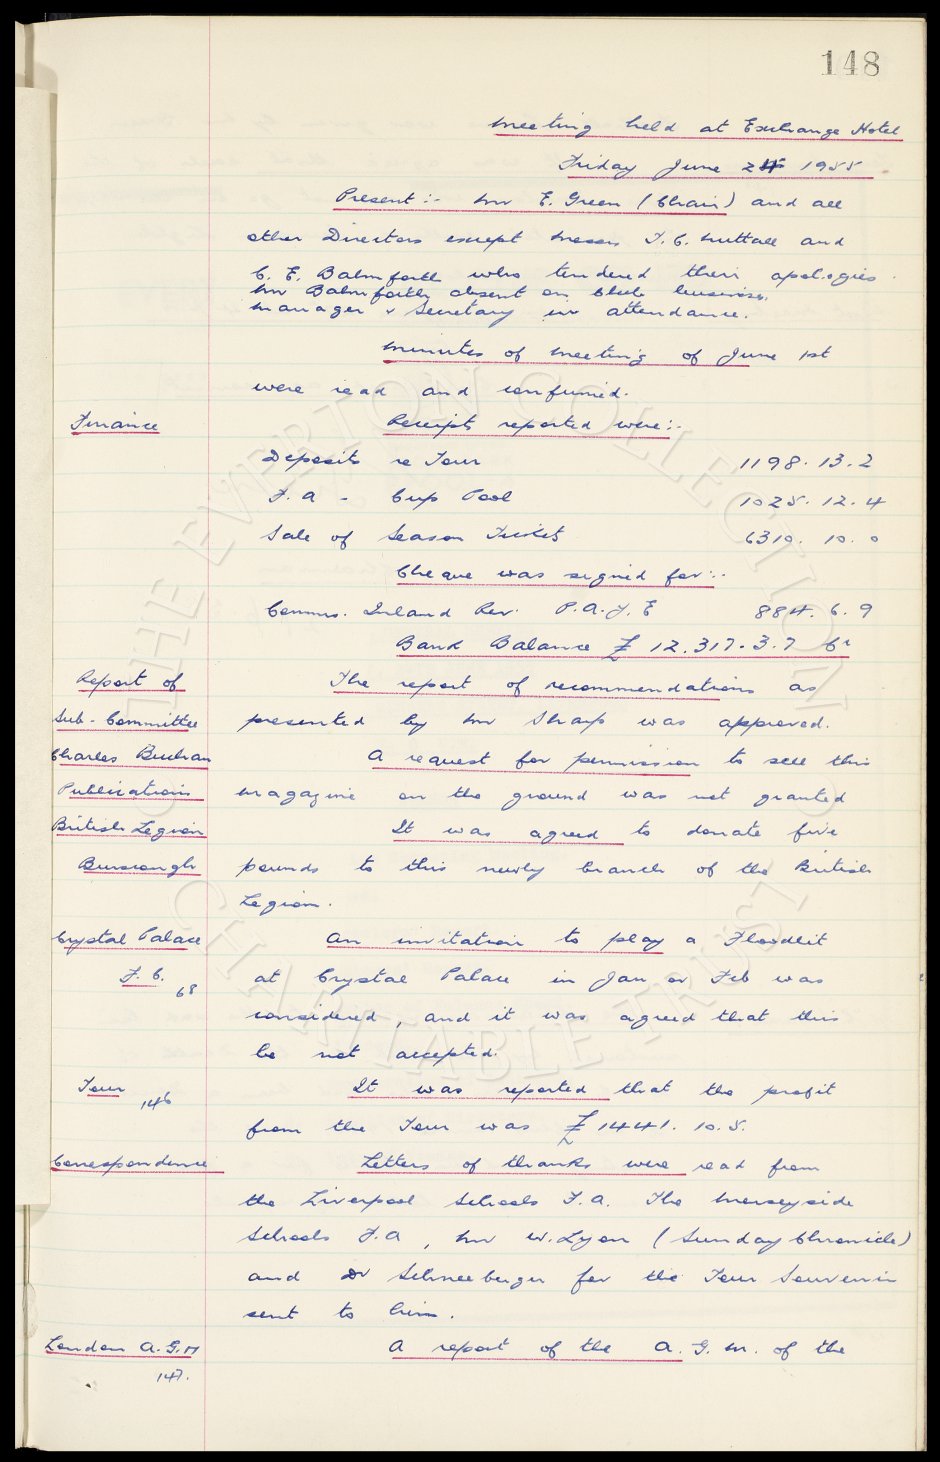 148
Meeting held at Exchange Hotel
Friday June 24 1955
Present:- Mr E. Green (Chair) and all
other Directors except Messrs T. C. Nuttall and
C. E. Balmforth who tendered their apologies
Mr Balmforth absent on Club business.
Manager & Secretary in attendance.
Minutes of Meeting of June 1st
were read and confirmed.
Finance Receipts reported were:-
Deposits re Tour 1198. 13. 2
F. A - Cup Pool 1025. 12. 4
Sale of Season Tickets 6310. 10. 0
Cheque was signed for:-
Comms. Inland Rev. P. A. Y. E 884. 6. 9
Bank Balance £ 12.317. 3. 7 Cr
Report of The report of recommendations as
Sub-Committee presented by Mr Sharp was approved.
Charles Buchan A request for permission to sell this
Publications magazine on the ground was not granted
British Legion It was agreed to donate five
Burscough pounds to this newly branch of the British
Legion.
Crystal Palace An invitation to play a Floodlit
F. C. 68 at Crystal Palace in Jan or Feb was
considered, and it was agreed that this
be not accepted.
Tour 146 It was reported that the profit
from the Tour was £ 1441. 10. 5.
Correspondence Letters of thanks were read from
the Liverpool Schools F. A. The Merseyside
Schools F. A, Mr W. Lyon (Sunday Chronicle)
and Dr Schneeberger for the Tour Souvenir
sent to him.
London A. G. M 147. A report of the A. G. M. of the
THE EVERTON COLLECTION
CHARITABLE TRUST